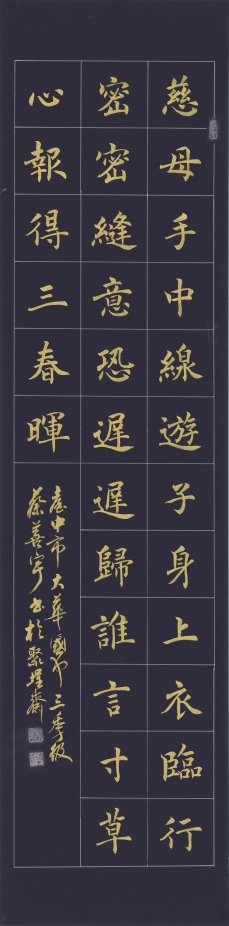 慈母手中線遊子身上衣臨行
密密縫意恐遲遲歸誰言寸草
心報得三春暉
臺中市大華國中三年級
蔡善宇書於聚墨齋